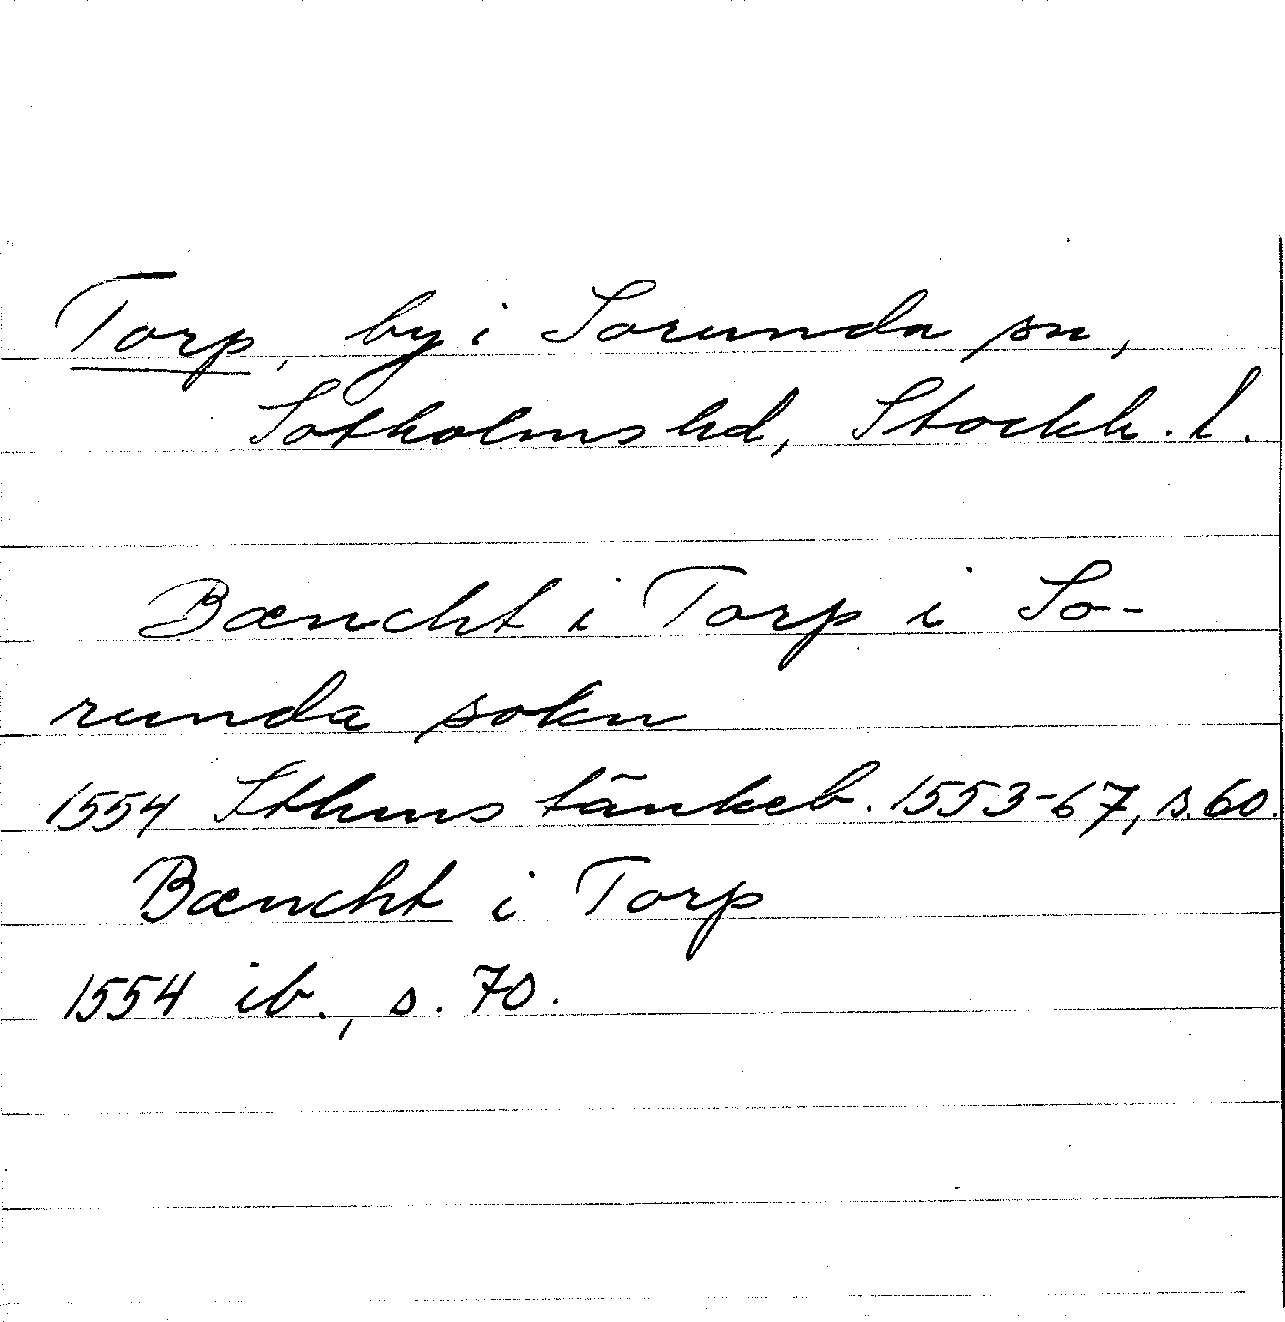 Torp, by i Sorunda sn,
Sotholms hd, Stockh. l.
Bæncht i Torp i So-
runda sokn
1554 Sthms tänkeb. 1553-67, s. 60.
Bæncht i Torp
1554 ib., s. 70.